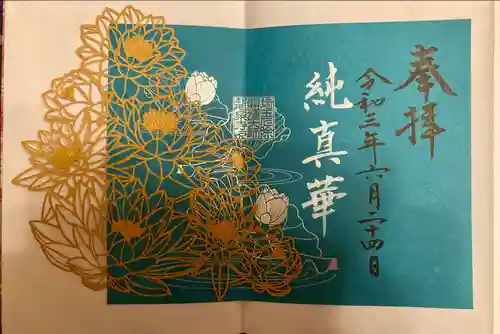 奉拝
令和三年六月二十四日
純真華